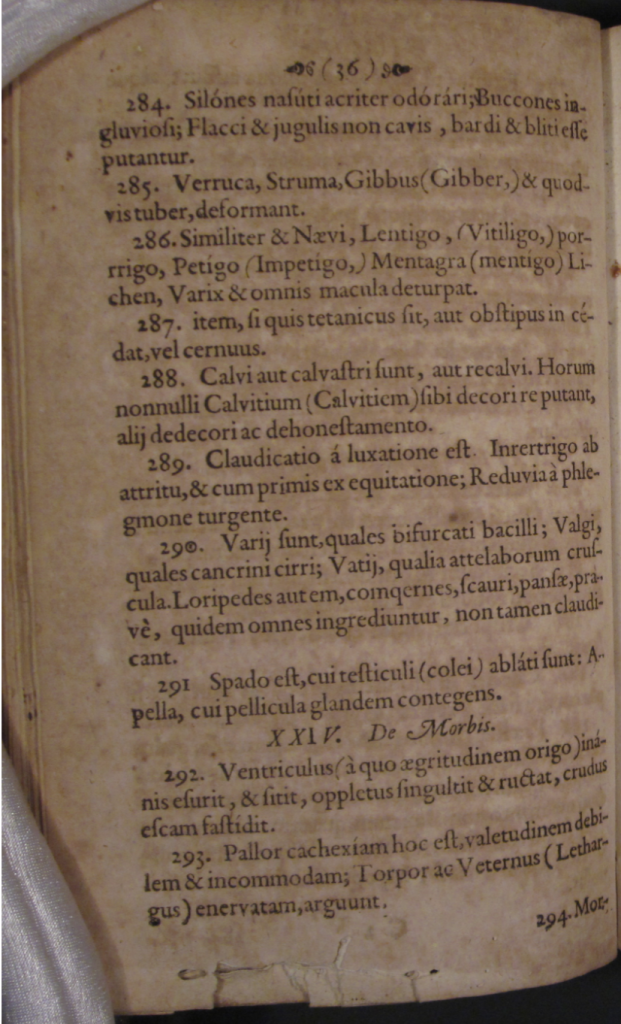 (36)
284. Silónes naſúti acriter odórári; Buccones in-
gluvioſi; Flacci & jugulis non cavis, bardi & bliti eſſe
putantur.
285. Verruca, Struma, Gibbus (Gibber,) & quod-
vis tuber, deformant.
286. Similiter & Nævi, Lentigo, (Vitiligo,) por-
rrigo, Petigo (Impetigo,) Mentagra (mentigo) Li-
chen, Varix & omnis macula deturpat.
287. item, ſi quis tetanicus ſit, aut obſtipus in cé-
dat, vel cernuus.
288. Calvi aut calvaſtri ſunt, aut recalvi. Horum
nonnulli Calvitium (Calvitiem) ſibi decori re putant,
alij dedecori ac dehoneſtamento.
289. Claudicatio á luxatione eſt. Inrertrigo ab
attritu, & cum primis ex equitatione; Reduvia à phle-
gmone turgente.
290. Varij ſunt, quales bifurcati bacilli; Valgi,
quales cancrini cirri; Vatij, qualia attelaborum cruſ-
cula. Loripedes autem, comqernes, ſcauri, panſæ, pra-
vè, quidem omnes ingrediuntur, non tamen claudi-
cant.
291 Spado eſt, cui teſticuli (colei) abláti ſunt: A-
pella, cui pellicula glandem contegens.
XXIV. De Morbis.
292. Ventriculus (à quo ægritudinem origo) iná-
nis eſurit, & ſitit, oppletus ſingultit & ructat, crudus
eſcam faſtídit.
293. Pallor cachexíam hoc eſt, valetudinem debi-
lem & incommodam; Torpor ac Veternus (Lethar-
gus) enervatam, arguunt.
294. Mor-